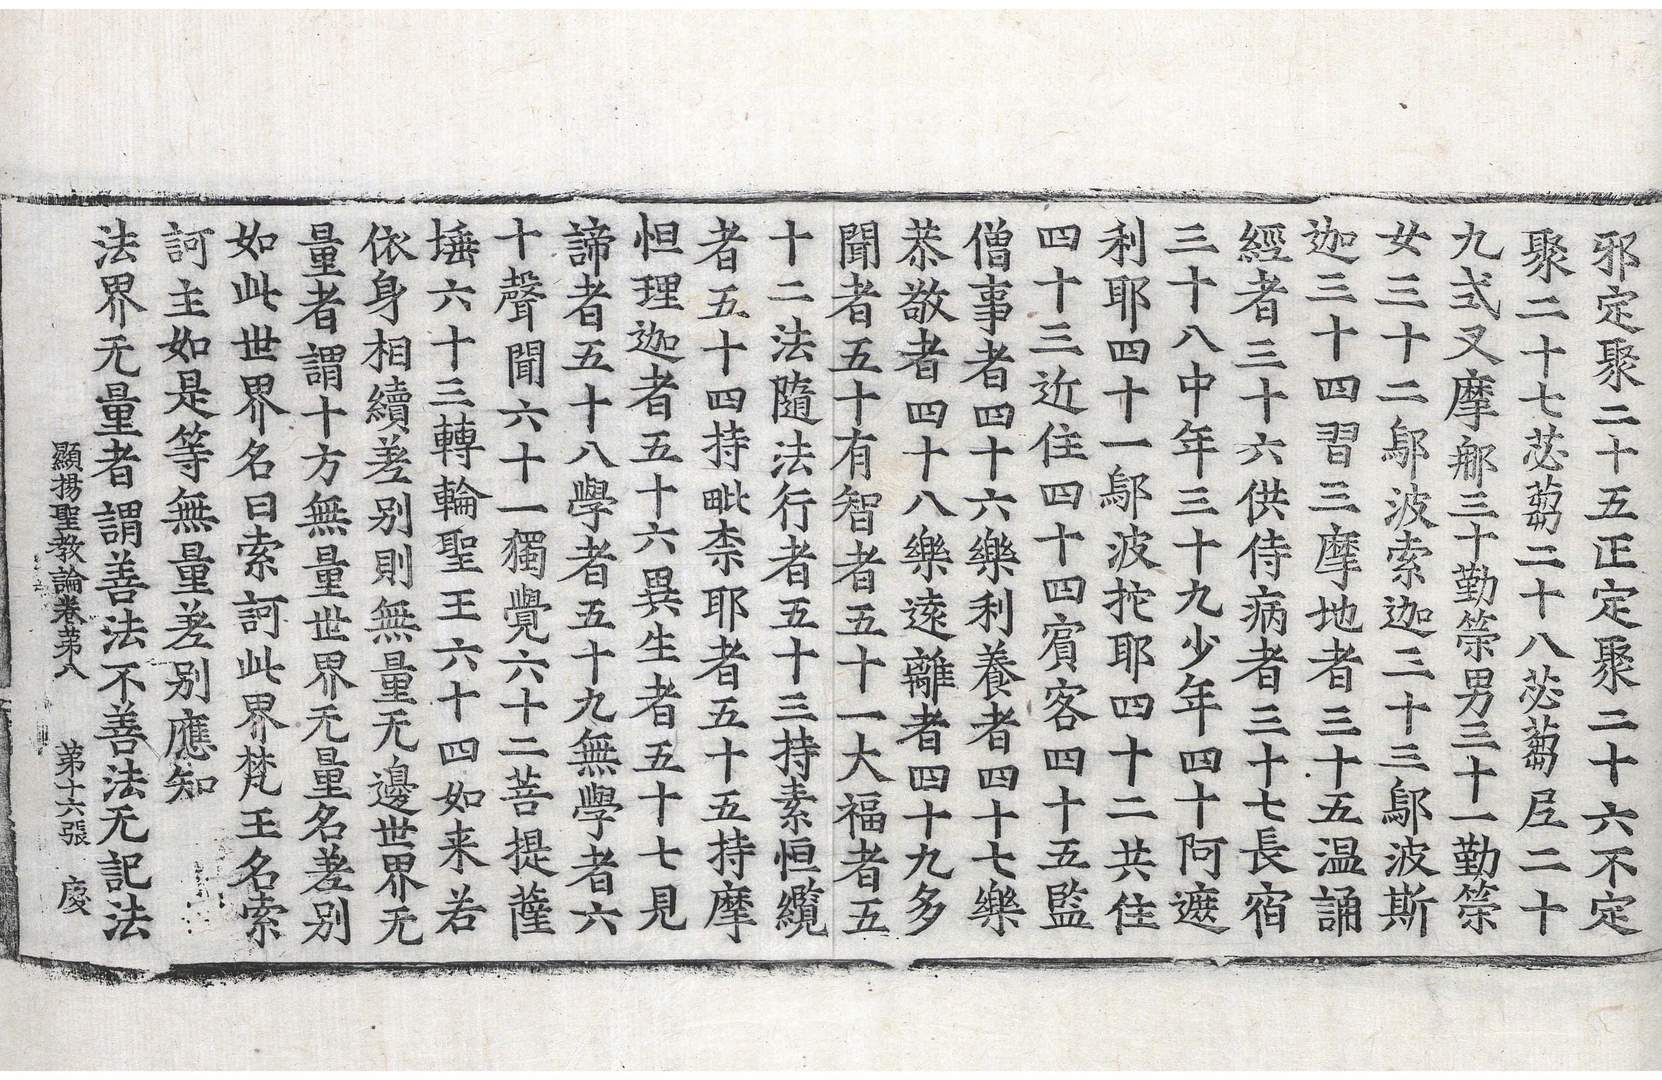 邪定聚二十五正定聚二十六不定
聚二十七苾蒭二十八苾蒭尼二十
九式叉摩那三十勤策男三十一勤策
女三十二鄔波索迦三十三鄔波斯
迦三十四習三摩地者三十五温誦
經者三十六供侍病者三十七長宿
三十八中年三十九少年四十阿遮
利耶四十一鄔波拕耶四十二共住
四十三近住四十四賓客四十五監
僧事者四十六樂利養者四十七樂
恭敬者四十八樂遠離者四十九多
聞者五十有智者五十一大福者五
十二法隨法行者五十三持素怛纜
者五十四持毗柰耶者五十五持摩
怛理迦者五十六異生者五十七見
諦者五十八學者五十九無學者六
十聲聞六十一獨覺六十二菩提薩
埵六十三轉輪聖王六十四如来若
依身相續差别則無量无邊世界无
量者謂十方無量世界无量名差别
如此世界名曰索訶此界梵王名索
訶主如是等無量差别應知
法界无量者謂善法不善法无記法
顯揚聖教論卷苐八　苐十六張　慶